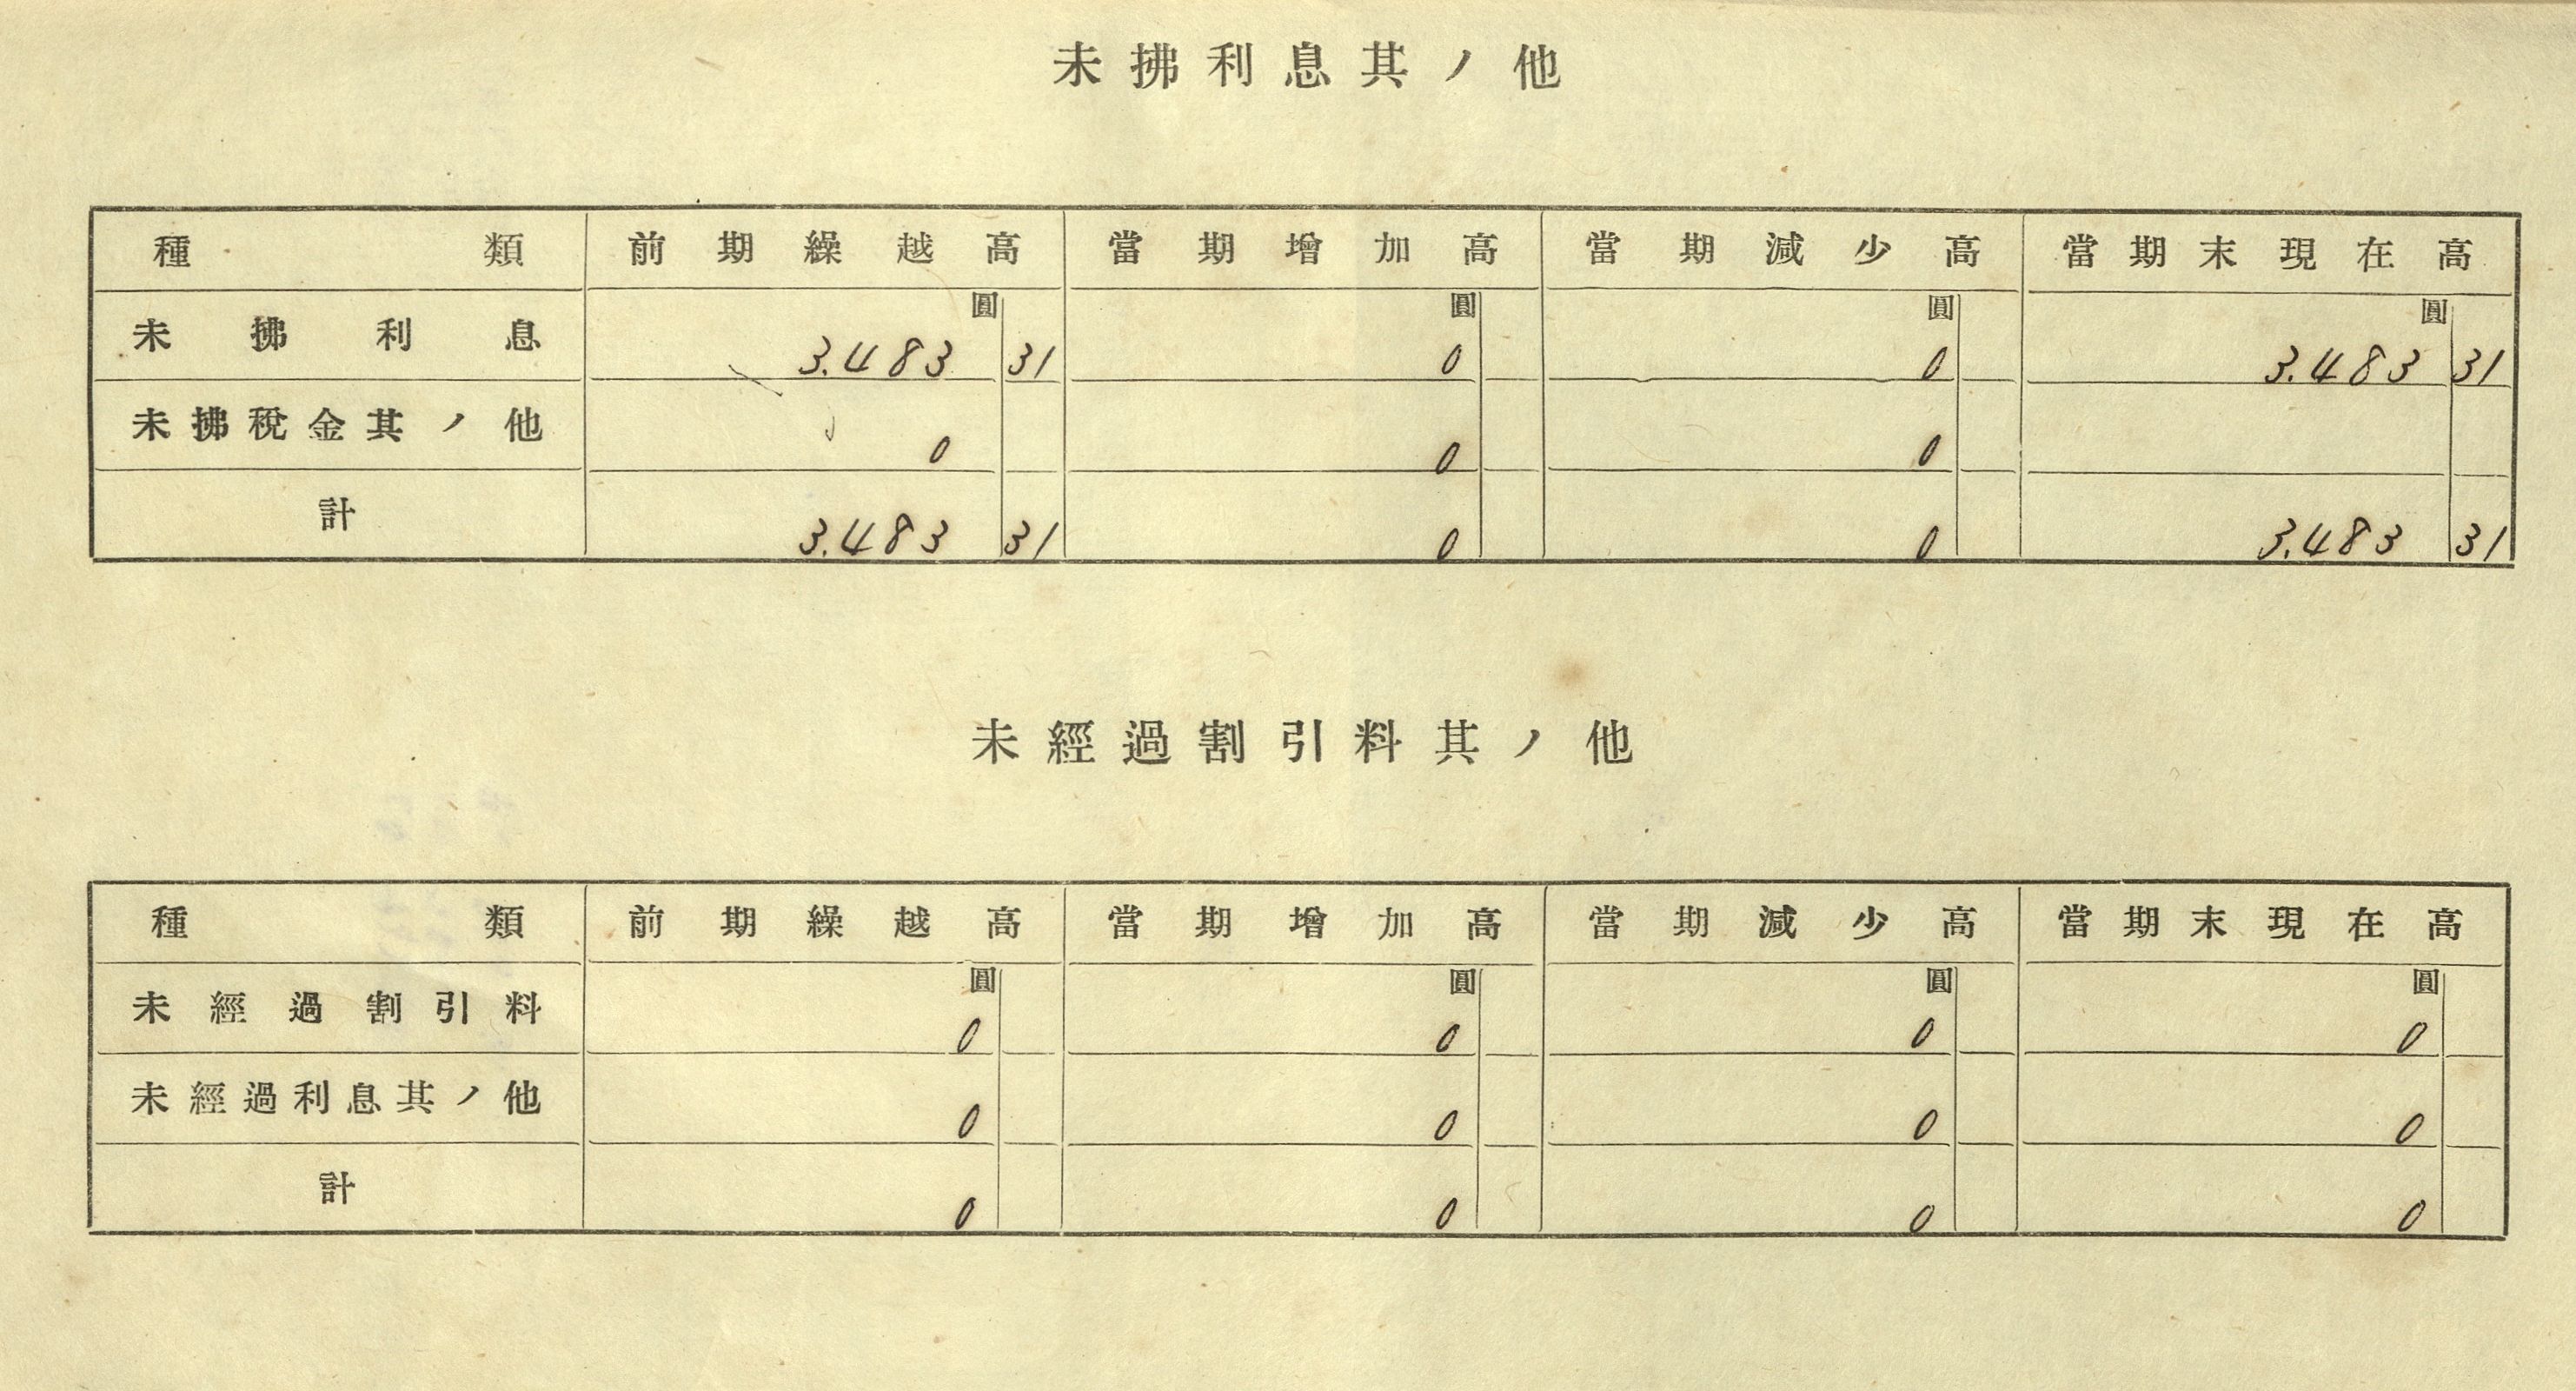 未拂利息其ノ他
種類 前期繰越高 當期增加高 當期減少高 當期末現在高
圓 圓 圓 圓
未拂利息 3.483 31 0 0 3.483 31
未拂稅金其ノ他 0 0 0
計 3.483 31 0 0 3.483 31
未經過割引料其ノ他
種類 前期繰越高 當期增加高 當期減少高 當期末現在高
圓 圓 圓 圓
未經過割引料 0 0 0 0
未經過利息其ノ他 0 0 0 0
計 0 0 0 0